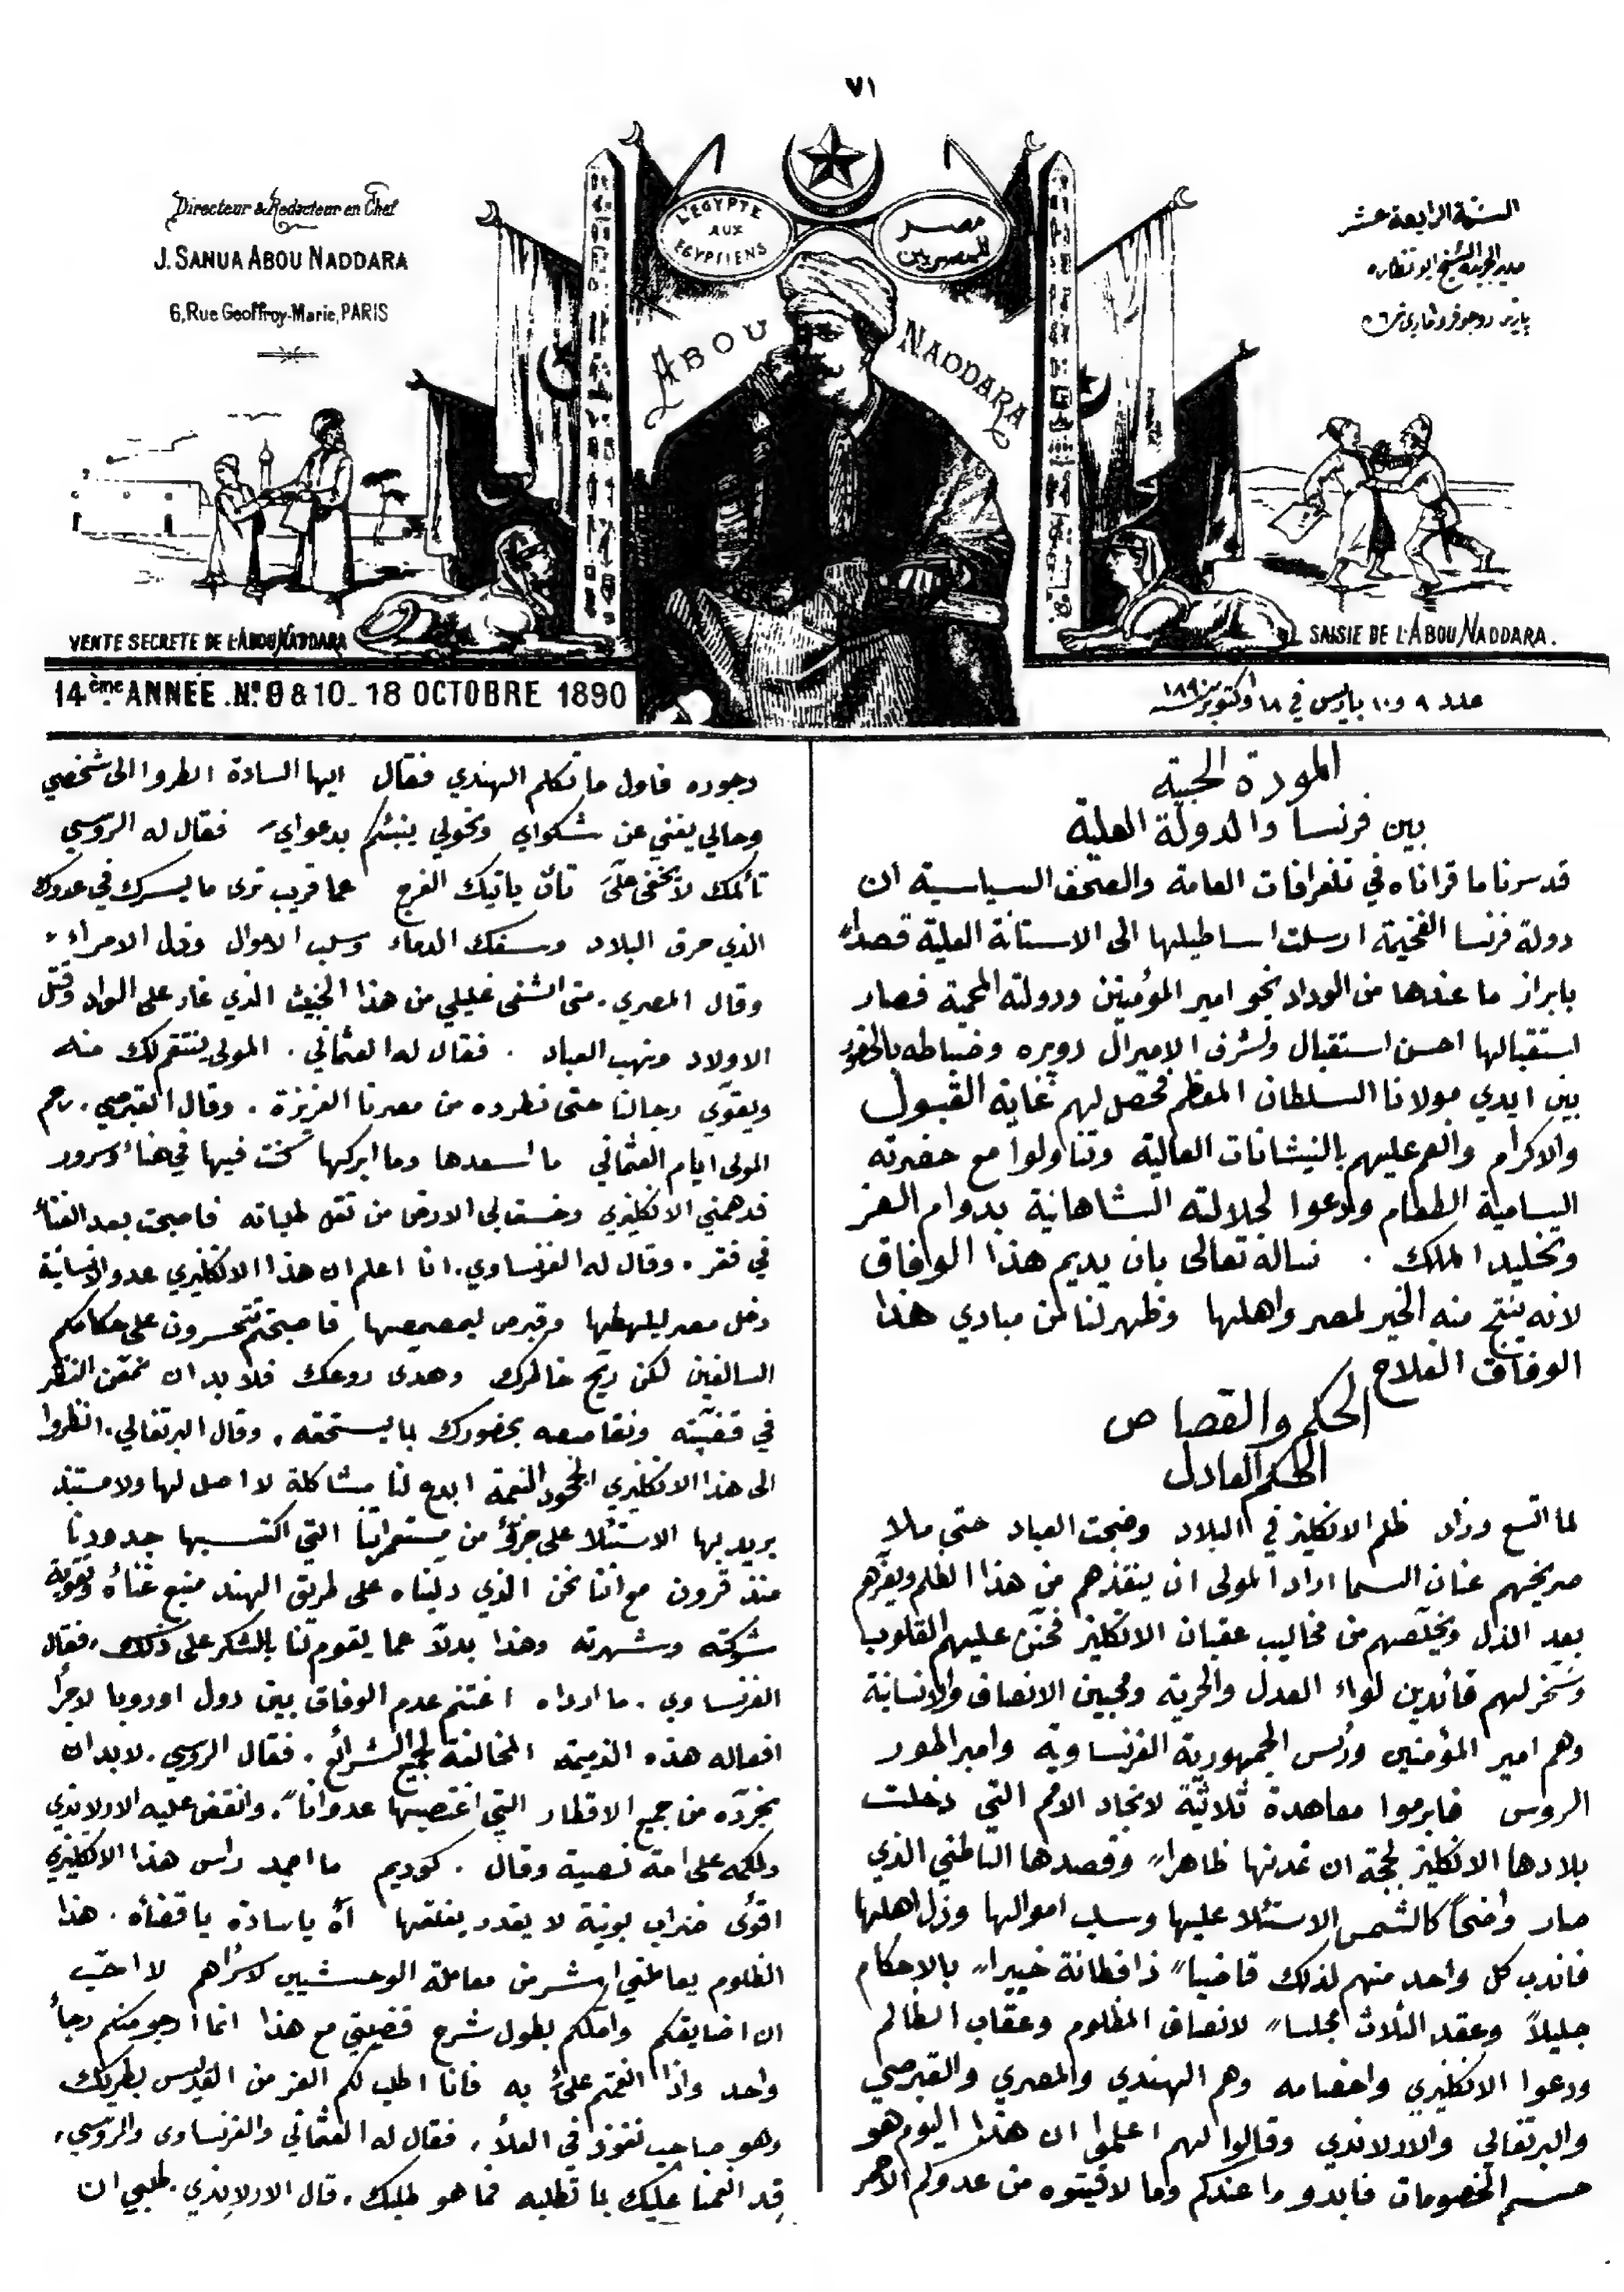 ٧١
Directeur & Redacteur en Chef
J. SANUA ABOU NADDARA
6, Rue Geoffroy-Marie, PARIS
L'EGYPTE
AUX
EGYPTIENS
مصر
للمصريين
ABOU NADDARA
السنة الرابعة عشر
مدير الجريدة الشيخ ابو نظاره
VENTE SECRETE DE L'ABOU NADDARA
SAISIE DE L'ABOU NADDARA.
14ème ANNÉE. Nos 9 & 10 _ 18 OCTOBRE 1890
عدد ٩ و ١٠ باريس في ١٨ اكتوبر سنة ١٨٩٠
المودة الحبية
بين فرنسا والدولة العلية
قد سرنا ما قراناه في تلغرافات العامة والصحف السياسية ان
دولة فرنسا الفخيمة ارسلت اساطيلها الى الاستانة العلية قصداً
بابراز ما عندها من الوداد نحو امير المؤمنين ودولته المحمية فصار
استقبالها احسن استقبال وتشرف الاميرال دوبره وضباطه بالحضور
بين ايدي مولانا السلطان المعظم فحصل لهم غاية القبول
والاكرام وانعم عليهم بالنيشانات العالية وتناولوا مع حضرته
السامية الطعام ودعوا لجلالته الشاهانية بدوام العز
وتخليد الملك . نساله تعالى بان يديم هذا الوفاق
لانه ينتج منه الخير لمصر واهلها وظهر لنا من مبادي هذا
الوفاق الفلاح
الحكم والقصاص
الحكم العادل
لما اتسع وزاد ظلم الانكليز في البلاد وضجت العباد حتى ملا
صريخهم عنان السما اراد المولى ان ينقذهم من هذا الظلم ويعزهم
بعد الذل ويخلصهم من مخاليب عقبان الانكليز فحنن عليهم القلوب
وسخر لهم قائدين لواء العدل والحرية ومحبين الانصاف والانسانية
وهم امير المؤمنين ورئس الجمهورية الفرنساوية وامبراطور
الروس فابرموا معاهدة ثلاثية لانجاد الامم التي دخلت
بلادها الانكليز بحجة ان تمدنها ظاهراً وقصدها الباطني الذي
صار واضحاً كالشمس الاستئلا عليها وسلب اموالها وذل اهلها
فاندب كل واحد منهم لذلك قاضياً ذا فطانة خبيراً بالاحكام
جليلاً وعقد الثلاث مجلساً لانصاف المظلوم وعقاب الظالم
ودعوا الانكليزي واخصامه وهم الهندي والمصري والقبرصي
والبرتقالي والارلاندي وقالوا لهم اعلموا ان هذا اليوم هو
حسم الخصومات فابدو ما عندكم وما لاقيتوه من عدوكم الاحمر
وجوره فاول ما تكلم الهندي فقال ايها السادة انظروا الى شخصي
وحالي يغني عن شكواي ونحولي ينبئكم بدعواي فقال له الروسي
تألمك لا يخفى عليَّ تأن ياتيك الفرج عما قريب ترى ما يسرك في عدوك
الذي حرق البلاد وسفك الدماء وسلب الاموال وذل الامراء
وقال المصري . متى اشفى غليلي من هذا الخبيث الذي غار على البلاد وقتل
الاولاد ونهب العباد . فقال له العثماني . المولى ينتقم لك منه
ويقوي رجالنا حتى نطرده من مصرنا العزيزة . وقال القبرصي . رحم
المولى ايام العثماني ما اسعدها وما ابركها كنت فيها في هناء وسرور
فدهمني الانكليزي وخسف بي الارض من ثقل طلباته فاصبحت بعد الغناء
في فقر . وقال له الفرنساوي . انا اعلم ان هذا الانكليزي عدو الانسانية
دخل مصر ليلهطها وقبرص ليمصمصها فاصبحتم تتحسرون على حكامكم
السالفين لكن ريح خاطرك وهدى روعك فلا بد ان نمعن النظر
في قضيته ونقاصصه بحضورك بما يستحقه . وقال البرتقالي . انظروا
الى هذا الانكليزي الجحود النعمة ابدع لنا مشاكلة لا اصل لها ولا مستند
يريد بها الاستئلا على جزؤ من مستعمراتنا التي اكتسبها جدودنا
منذ قرون مع اننا نحن الذي دليناه على طريق الهند منبع غناه وتقوية
شوكته وشهرته وهذا بدلاً عما يقوم لنا بالشكر على ذلك . فقال
الفرنساوي . ما ارداه اغتنم عدم الوفاق بين دول اوروبا لاجرأ
افعاله هذه الذميمة المخالفة لجميع الشرائع . فقال الروسي . لا بد ان
نجرده من جميع الاقطار التي اغتصبها عدواناً . وانقض عليه الارلاندي
ولكمه على امة نصية وقال . كوديم ما اجمد راس هذا الانكليزي
اقوى ضراب بونية لا يقدر يفلقها آه يا سادة يا قضاه . هذا
الظلوم يعاملني اشر من معاملة الوحشيين لاسراهم لا احب
ان اضايقكم واملكم بطول شرح قضيتي مع هذا انما ارجو منكم رجأ
واحد واذا انعمتم عليَّ به فانا اطلب لكم العز من القديس بطريك
وهو صاحب نفوذ في العلا . فقال له العثماني والفرنساوى والروسي .
قد انعمنا عليك بما تطلبه فما هو طلبك . قال الارلاندي . طلبي ان